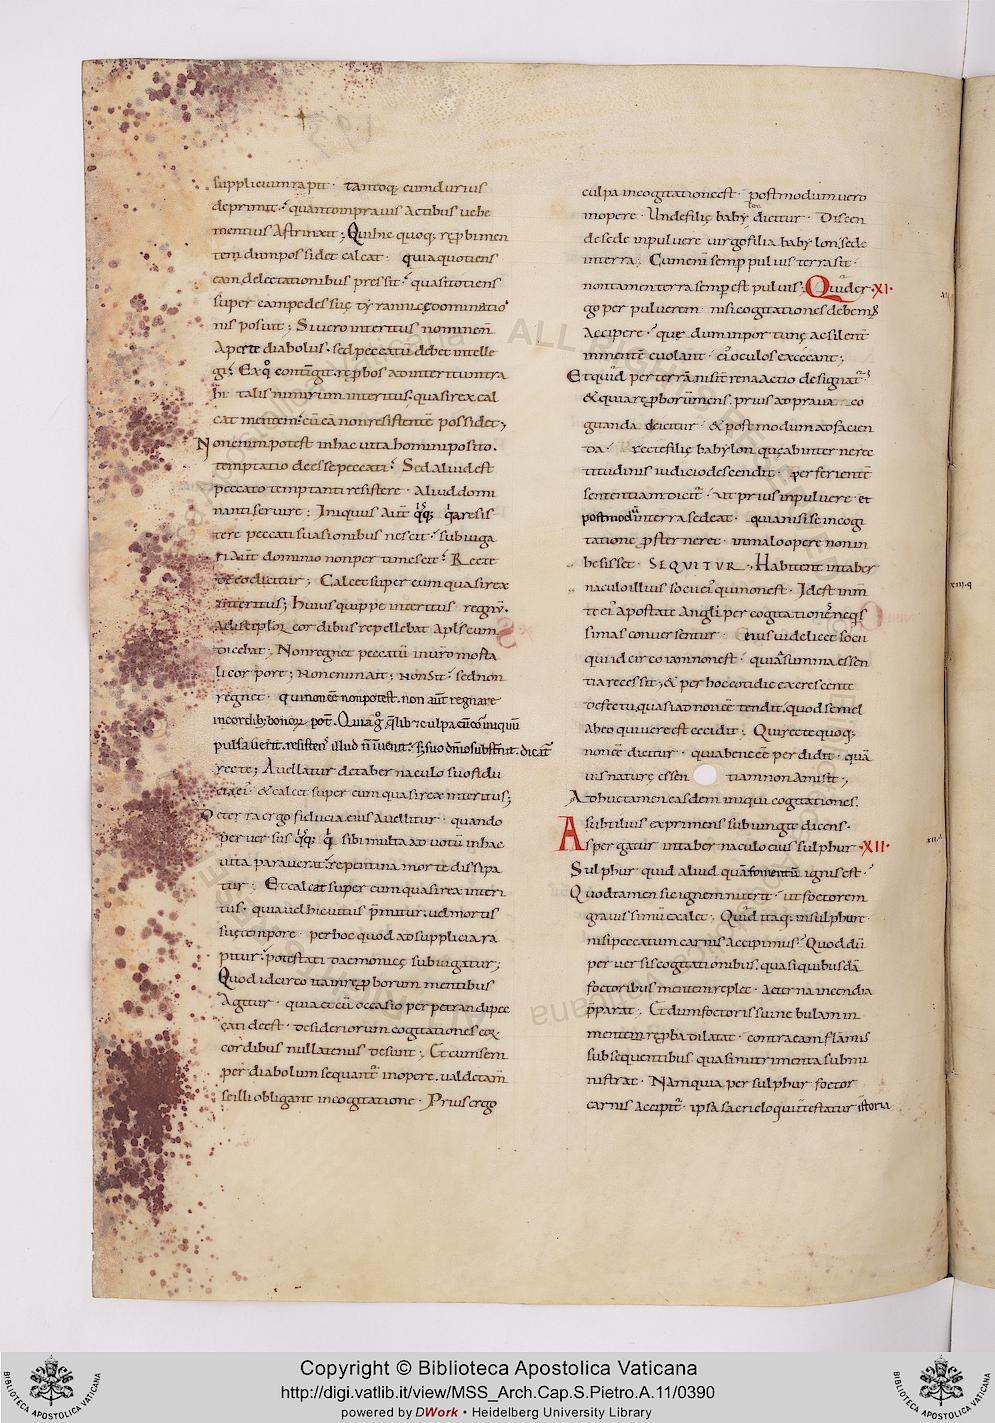 supplicium rapit · tantoq; eum durius
deprimit · quanto in pravis actibus vehe
mentius astrinxit ; Qui hic quoq; reproborum men
tem dum possidet calcat · quia quotiens
eam delectationibus pressit · quasi totiens
super eam pedes suę tyrannicę dominatio
nis posuit ; Si vero interitus nomine n̄
aperte diabolus · sed peccatū debet intelle
non enim potest in hac vita homini posito ·
temptatio deesse peccati · Sed aliud est
peccato temptanti resistere · Aliud domi
nanti servire ; Iniquus aut̄
tere peccati suasionibus nescit · subiuga
ri aut̄ dominio non pertimescit · Recte
Calcet super eum quasi rex
interitus ; Huius quippe interitus regnū ·
a discipulor̄ cordibus repellebat apl̄s cum
dicebat ; Non regnet peccatū in vr̄o morta
li corpore ; Non enim ait ; non sit · sed non
regnet · qui non eē non potest · non aut̄ regnare
recte ; Avellatur de tabernaculo suo fidu
cia ei · & calcet super eum quasi rex interitus ;
Deter ra ergo fiducia eius avellitur · quando
perversus sibi multa ad votū in hac
vita paraverat · repentina morte dissipa
tur ; Et calcat super eum quasi rex interi
tus · quia vel hic vitiis p̄mitur · vel mortis
suę tempore · per hoc quod ad supplicia ra
pitur · potestati daemonicę subiugatur ;
Quod idcirco ita in reproborum mentibus
agitur · quia et cū occasio perpetrandi pec
cati deest · desideriorum cogitationes eor̄
cordibus nullatenus desunt ; Et cum sem
per diabolum sequant̄ in opere · valde tam̄
se illi obligant in cogitatione · Prius ergo
culpa in cogitatione est · postmodum vero
in opere · Unde filię babylon dicitur · Discen
de sede in pulvere virgo filia babylon · sede
in terra ; Cum enim semp̄ pulvis terra sit ·
non tamen terra semp̄ est pulvis ; Quid er · XI ·
go per pulverem · nisi cogitationes debem̄
accipere · quę dum inportunę ac silent̄
in mentē evolant · ei' oculos excęcant ;
Et quid per terrā nisi terrena actio designat̄
& quia reproborū mens · prius ad prava co
gitanda deicitur · & postmodum ad facien
da · recte filię babylon quę ab internę rec
titudinis iudicio descendit · per ferientē
sententiam dicit̄ · ut prius in pulvere et
postmodū in terra sedeat · quia nisi se in cogi
tatione p̄sterneret · in malo opere non in
hesisset · SEQVITVR ; Habitent in taber
naculo illius socii ei' qui non est · Id est in m̄
te ei' apostatę angli per cogitationē neq̄s
simas conversentur · eius videlicet socii
qui idcirco iam non est · quia a summa essen
tia recessit ; & per hoc cotidie excrescente
defectu quasi ad non eē tendit · quod semel
ab eo qui vere est cecidit ; Qui recte quoq;
non eē dicitur · quia bene eē perdidit · quā
vis naturę essen tiam non amisit ;
Adhuc tamen easdem iniqui cogitationes ·
subtilius exprimens subiungit dicens ·
Aspergatur in tabernaculo eius sulphur · XII ·
Sulphur quid aliud quā fomentū ignis est ·
Quod tamen sic ignem nutrit · ut foetorem
gravissimū exalet ; Quid itaq; in sulphure ·
nisi peccatum carnis accipimus · Quod dū
perversis cogitationibus · quasi quibusdā
foetoribus mentem replet · aeterna incendia
p̄parat ; Et dum foetoris sui nebulam in
mentem reproba dilatat · contra eam flāmis
subsequentibus quasi nutrimenta submi
nistrat · Nam quia per sulphur foetor
carnis accipit̄ · ipsa sacri eloquii testatur istoria
Copyright © Biblioteca Apostolica Vaticana
http://digi.vatlib.it/view/MSS_Arch.Cap.S.Pietro.A.11/0390
powered by DWork • Heidelberg University Library